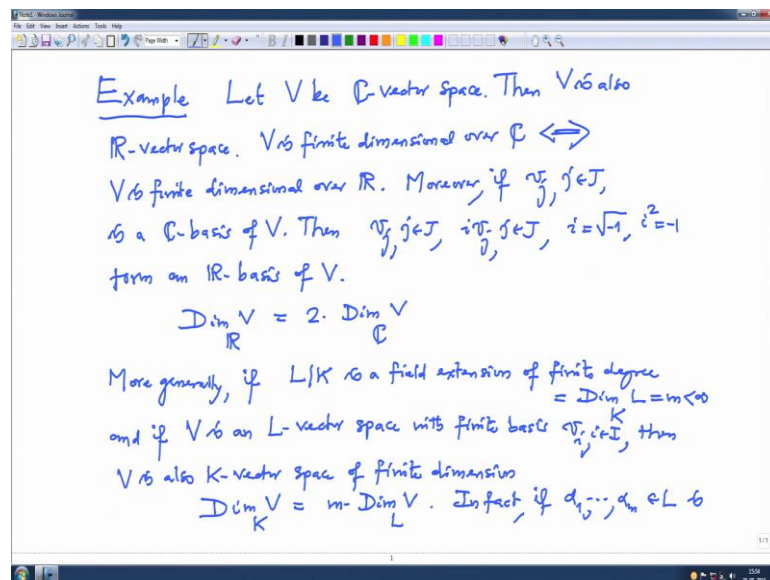 Note1 - Windows Journal
File Edit View Insert Actions Tools Help
Page Width
Example Let V be ℂ-vector space. Then V is also
ℝ-vector space. V is finite dimensional over ℂ ⟺
V is finite dimensional over ℝ. Moreover, if v_j, j∈J,
is a ℂ-basis of V. Then v_j, j∈J, iv_j, j∈J, i = √-1, i² = -1
form an ℝ-basis of V.
Dim_ℝ V = 2· Dim_ℂ V
More generally, if L|K is a field extension of finite degree
= Dim_K L = m < ∞
and if V is an L-vector space with finite basis v_i, i∈I, then
V is also K-vector space of finite dimension
Dim_K V = m· Dim_L V. In fact, if α_1, ..., α_m ∈ L is
1/1
1
15:54